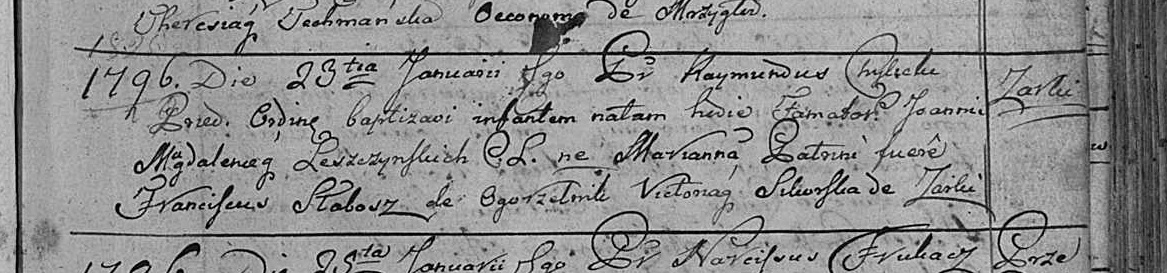 Theresia Techmańska Oeconoma de Mrzygłod.
1796. Die 23tia Januarii Ego Pr Raymundus Żarki
Pried. Ordinę baptizavi infantem natam hodie Famator. Joannis
Magdalenæ Leszczynskich C. L. ne Marianna Patrini fuerê
Franciscus Słabosz de Ogorzelnik Victoria Sikorska de Żarki
1796 Die 25ta Januarii Ego Pr Narcissus